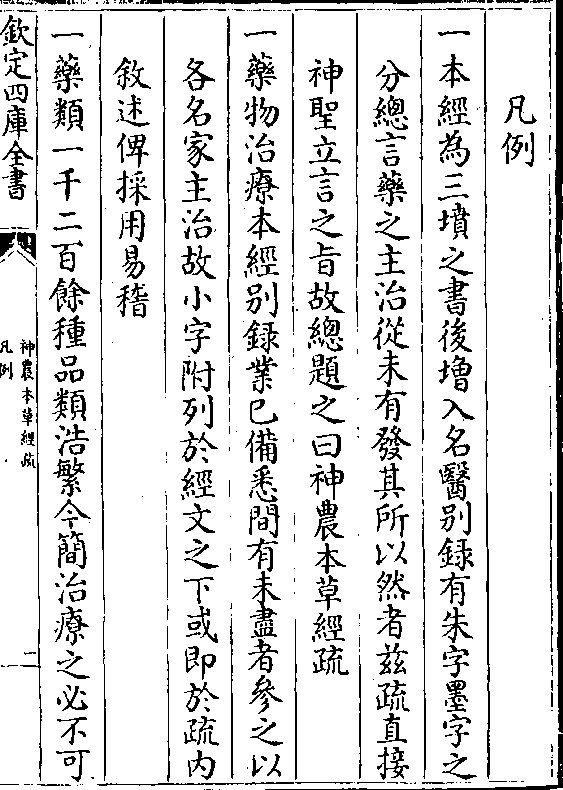 凡例
一本經為三墳之書後增入名醫别録有朱字墨字之
分總言藥之主治從未有發其所以然者兹疏直接
神聖立言之旨故總題之曰神農本草經疏
一藥物治療本經别録業已備悉間有未盡者參之以
各名家主治故小字附列於經文之下或即於疏内
敘述俾採用易稽
一藥類一千二百餘種品類浩繁今簡治療之必不可
欽定四庫全書
神農本草經疏
凡例
二